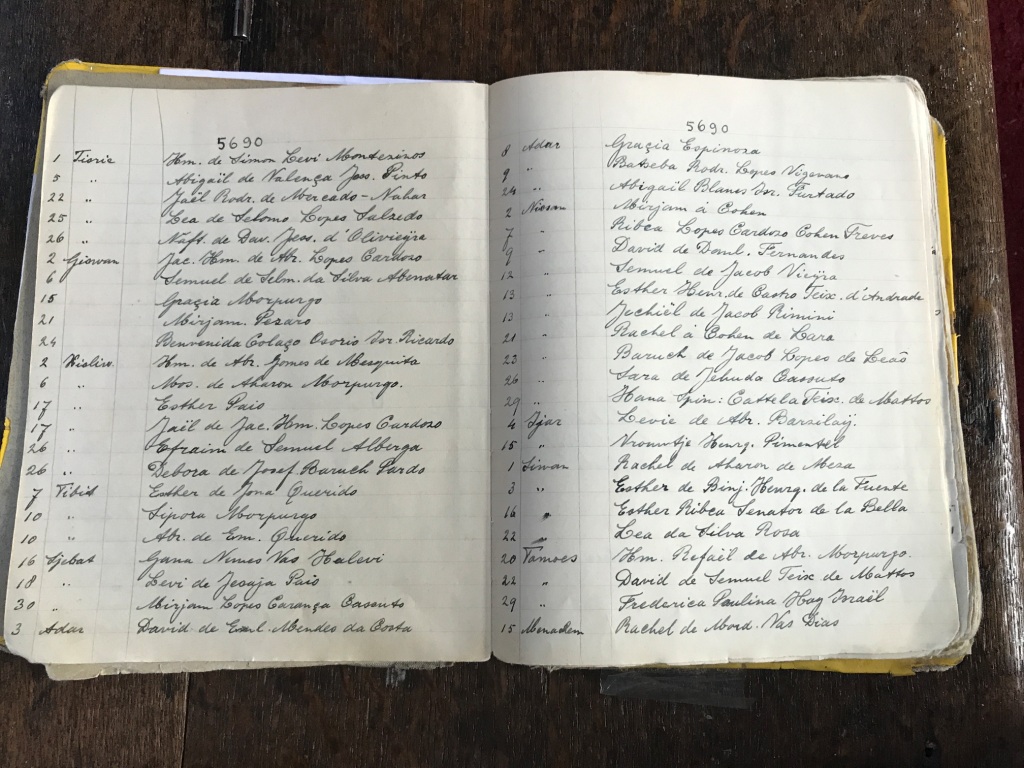 5690
1 Tisrie Hm. de Simon Levi Montezinos
5 „ Abigaïl de Valença Jess. Pinto
22 „ Jaël Rodr. de Mercado-Nahar
25 „ Lea de Selomo Lopes Salzedo
26 „ Naft. de Dav. Jess. d'Oliviejra
2 Giesvan Jac. Hm. de Abr. Lopes Cardozo
6 Semuel de Selm. da Silva Abenatar
15 Graçia Morpurgo
21 Mirjam. Pezaro
24 Benvenida Colaço Osorio Dor. Ricardo
2 Kisliw. Hm. de Abr. Gomes de Mesquita
6 „ Mos. de Aharon Morpurgo.
17 „ Esther Pais
17 „ Jaïl de Jac. Hm. Lopes Cardozo
26 „ Efraïm de Semuel Alberga
26 „ Debora de Josef Baruch Pardo
7 Tibit Esther de Jona Querido
10 „ Sipora Morpurgo
10 „ Abr. de Em. Querido
16 Sjebat Gana Nunes Vas Halevi
18 „ Levi de Jesaja Pais
30 „ Mirjam Lopes Carança Cassuto
3 Adar David de Eml. Mendes da Costa
5690
8 Adar Graçia Espinoza
9 „ Batseba Rodr. Lopes Vigevano
24 „ Abigaïl Blanes Dor. Furtado
2 Niesan Mirjam á Cohen
7 „ Ribca Lopes Cardozo Cohen Treves
9 „ David de Danl. Fernandes
12 „ Semuel de Jacob Viejra
13 „ Esther Henr. de Castro Teix. d'Andrade
13 „ Jechiël de Jacob Rimini
21 „ Rachel á Cohen de Lara
23 „ Baruch de Jacob Lopes de Leaõ
26 „ Sara de Jehuda Cassuto
29 „ Hana Spin: Cattela Teix. de Mattos
4 Ijar Levie de Abr. Barzilaÿ.
15 „ Vrouwtje Henrq. Pimentel
1 Siwan Rachel de Aharon de Meza
3 „ Esther de Binj. Henrq. de la Fuente
16 „ Esther Ribca Senator de la Bella
22 „ Lea da Silva Rosa
20 Tamoes Hm. Refaïl de Abr. Morpurgo.
22 „ David de Semuel Teix de Mattos
29 „ Frederica Paulina Haÿ Israël
15 Menachem Rachel de Mord. Vas Dias